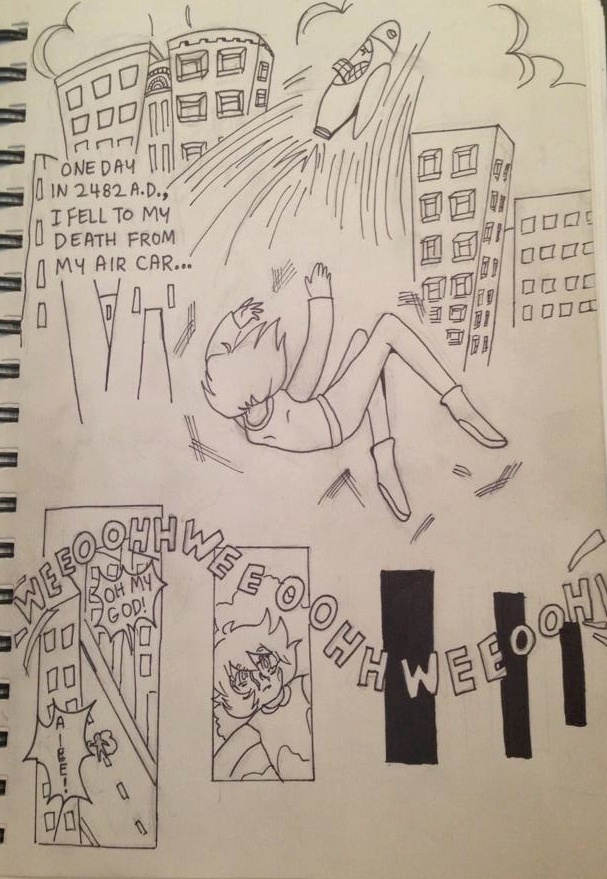 ONE DAY
IN 2482 A.D.,
I FELL TO MY
DEATH FROM
MY AIR CAR...
WEEOOHHWEEOOHHWEEOOH!
OH MY
GOD!
AIBE!!